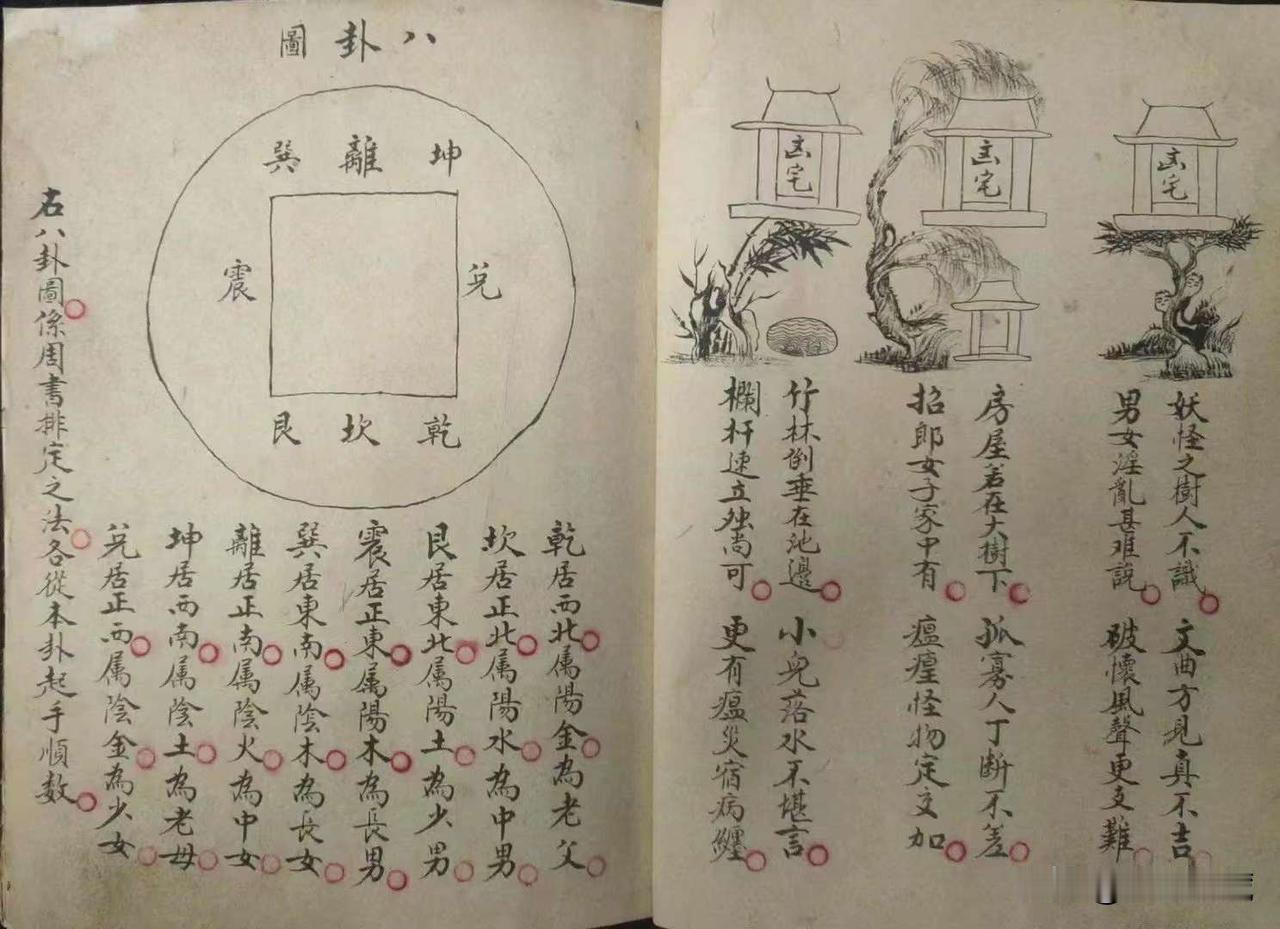 凶宅
妖怪之樹人不識
文曲方見真不吉
男女淫亂甚难說
破懷風聲更支難
凶宅
房屋若在大樹下
孤寡人丁断不差
招郎女子家中有
瘟瘽怪物定交加
凶宅
竹林倒垂在池邊
小兒落水不堪言
欄杆速立独尚可
更有瘟災宿病纏
八卦圖
巽 離 坤
震 兌
艮 坎 乾
乾居西北属陽金為老父
坎居正北属陽水為中男
艮居東北属陽土為少男
震居正東属陽木為長男
巽居東南属陰木為長女
離居正南属陰火為中女
坤居西南属陰土為老母
兌居正西属陰金為少女
右八卦圖係周書排定之法各從本卦起手順数